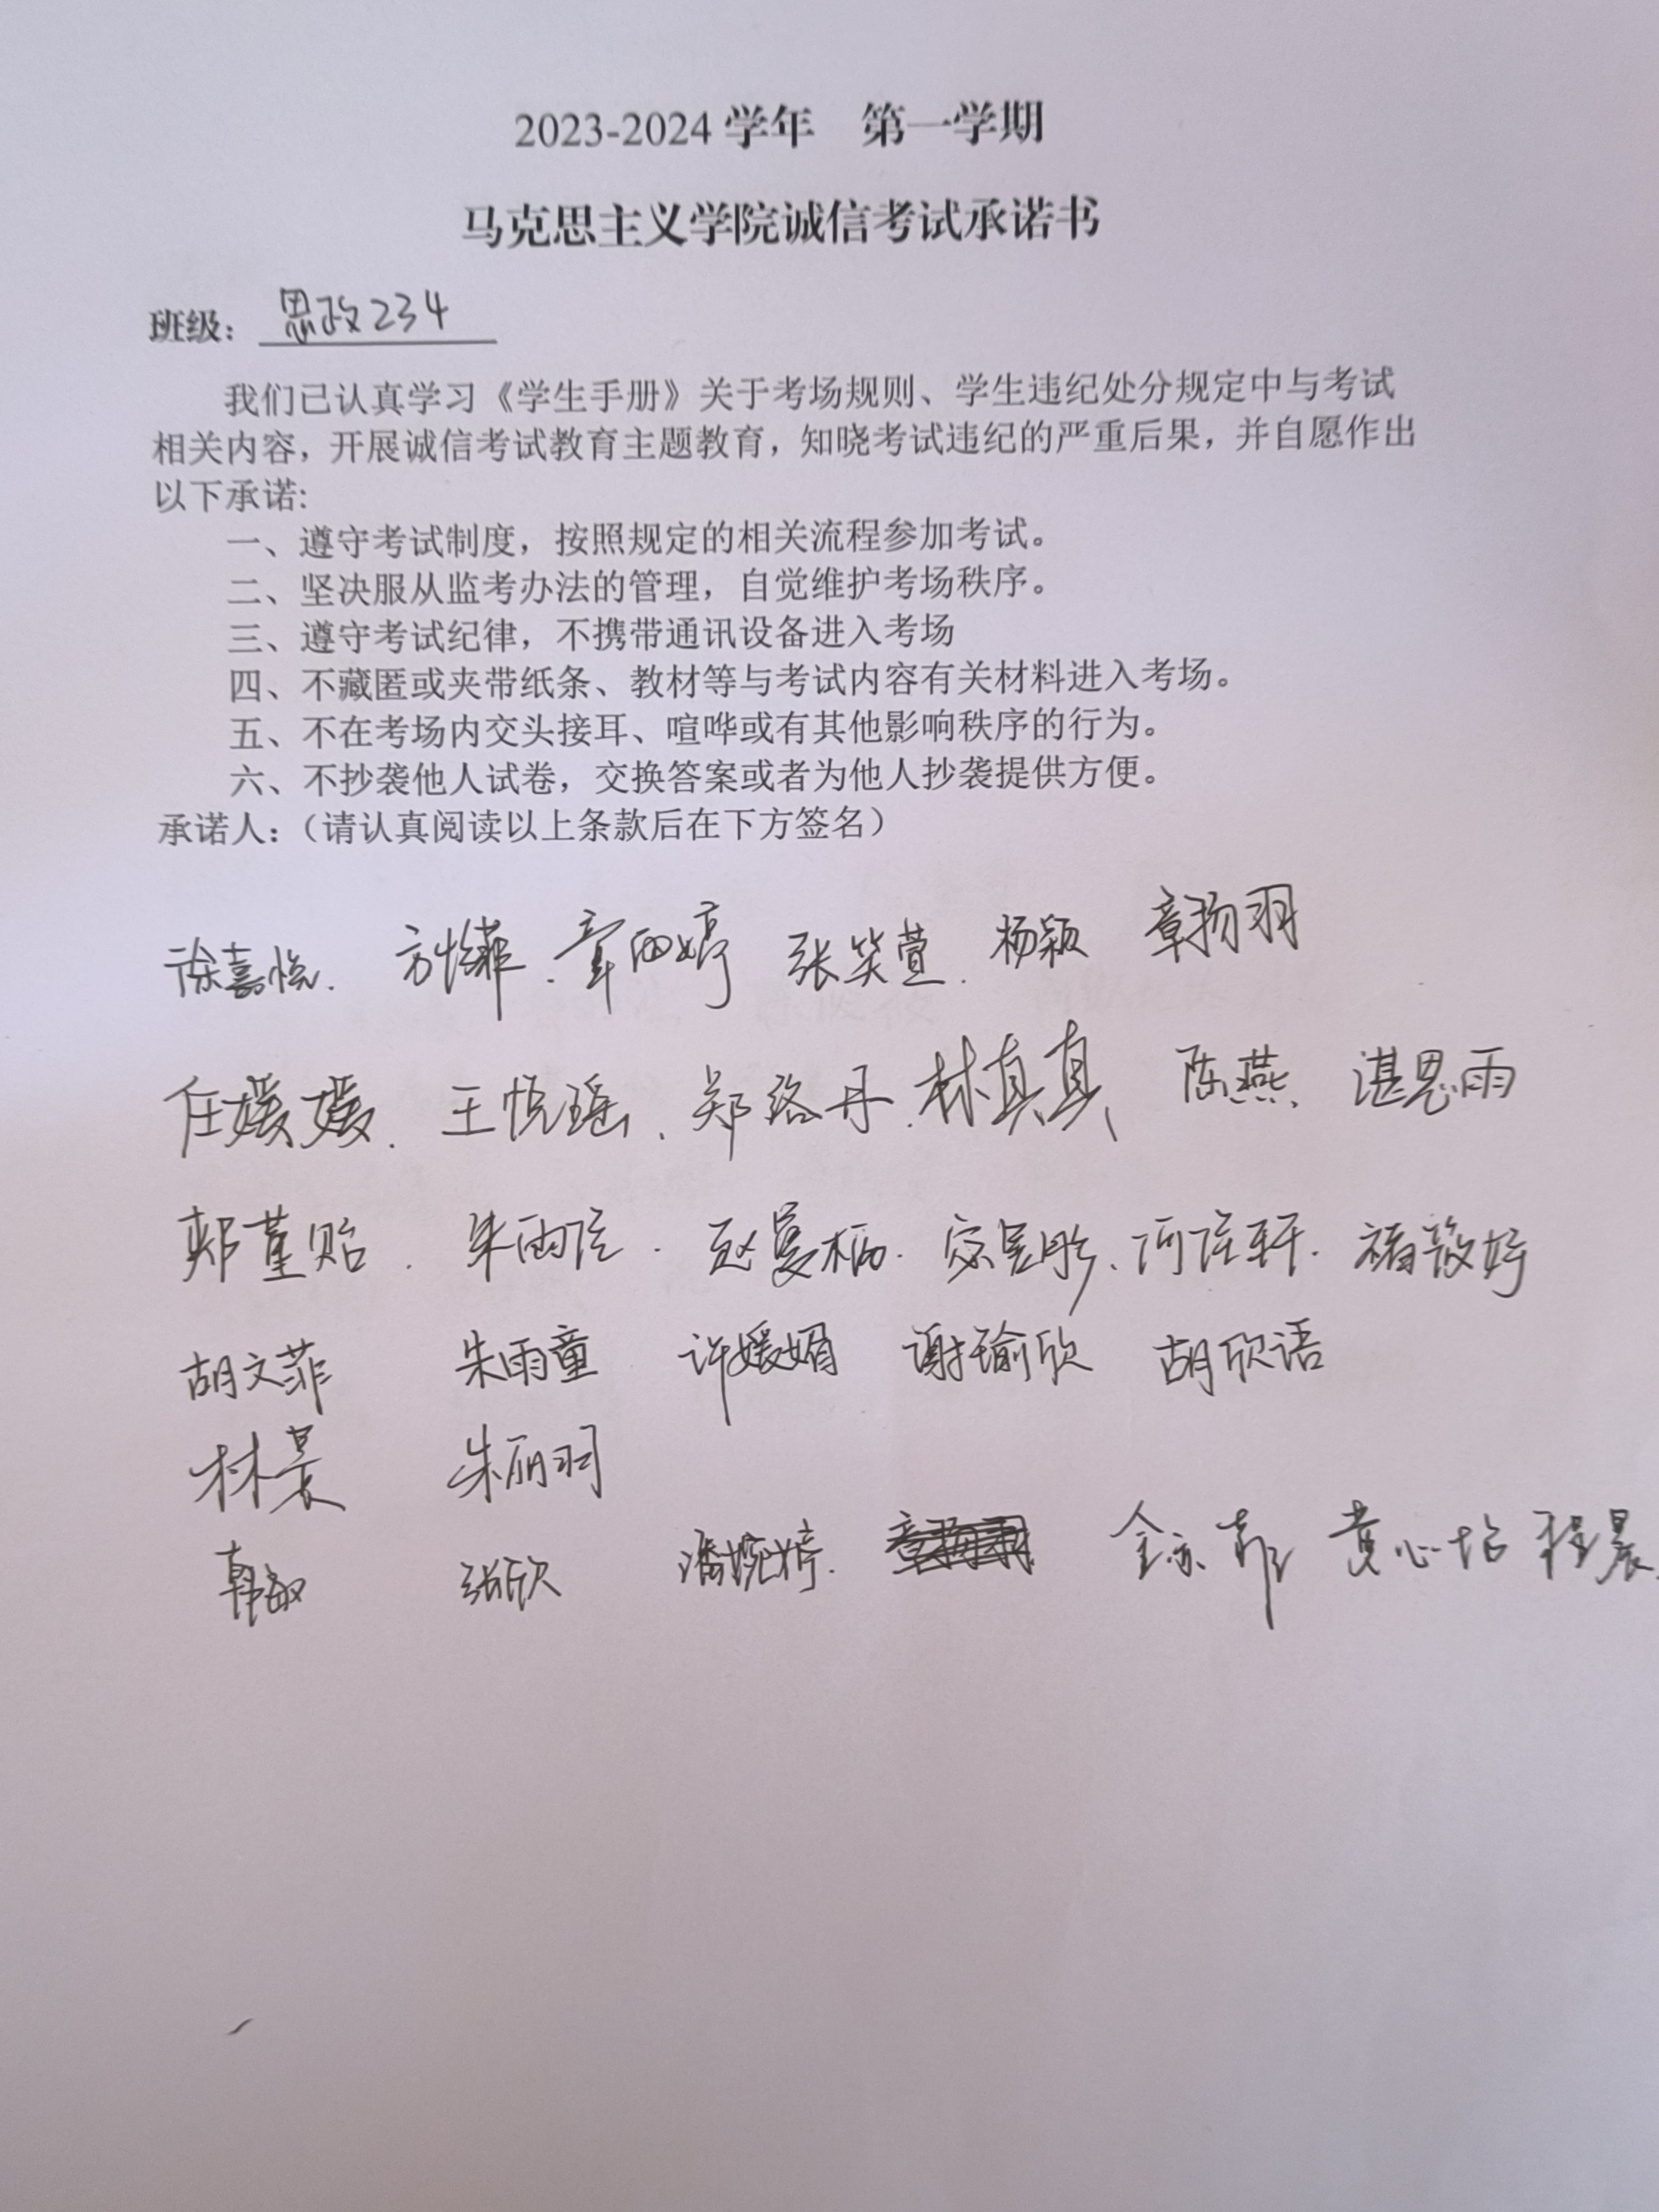 2023-2024 学年 第一学期
马克思主义学院诚信考试承诺书
班级：思政234
我们已认真学习《学生手册》关于考场规则、学生违纪处分规定中与考试
相关内容，开展诚信考试教育主题教育，知晓考试违纪的严重后果，并自愿作出
以下承诺:
一、遵守考试制度，按照规定的相关流程参加考试。
二、坚决服从监考办法的管理，自觉维护考场秩序。
三、遵守考试纪律，不携带通讯设备进入考场
四、不藏匿或夹带纸条、教材等与考试内容有关材料进入考场。
五、不在考场内交头接耳、喧哗或有其他影响秩序的行为。
六、不抄袭他人试卷，交换答案或者为他人抄袭提供方便。
承诺人：（请认真阅读以上条款后在下方签名）
徐嘉悦. 章雨婷 张笑萱. 杨颖 章扬羽
任媛媛. 王悦瑶. 郑洛丹. 林真真 陈燕. 湛思雨
郏堇贻.
胡文菲 朱雨童 许媛媚 谢瑜欣 胡欣语
林景 朱丽羽
韩敏 张欣 潘婉婷. 黄心怡 程晨.